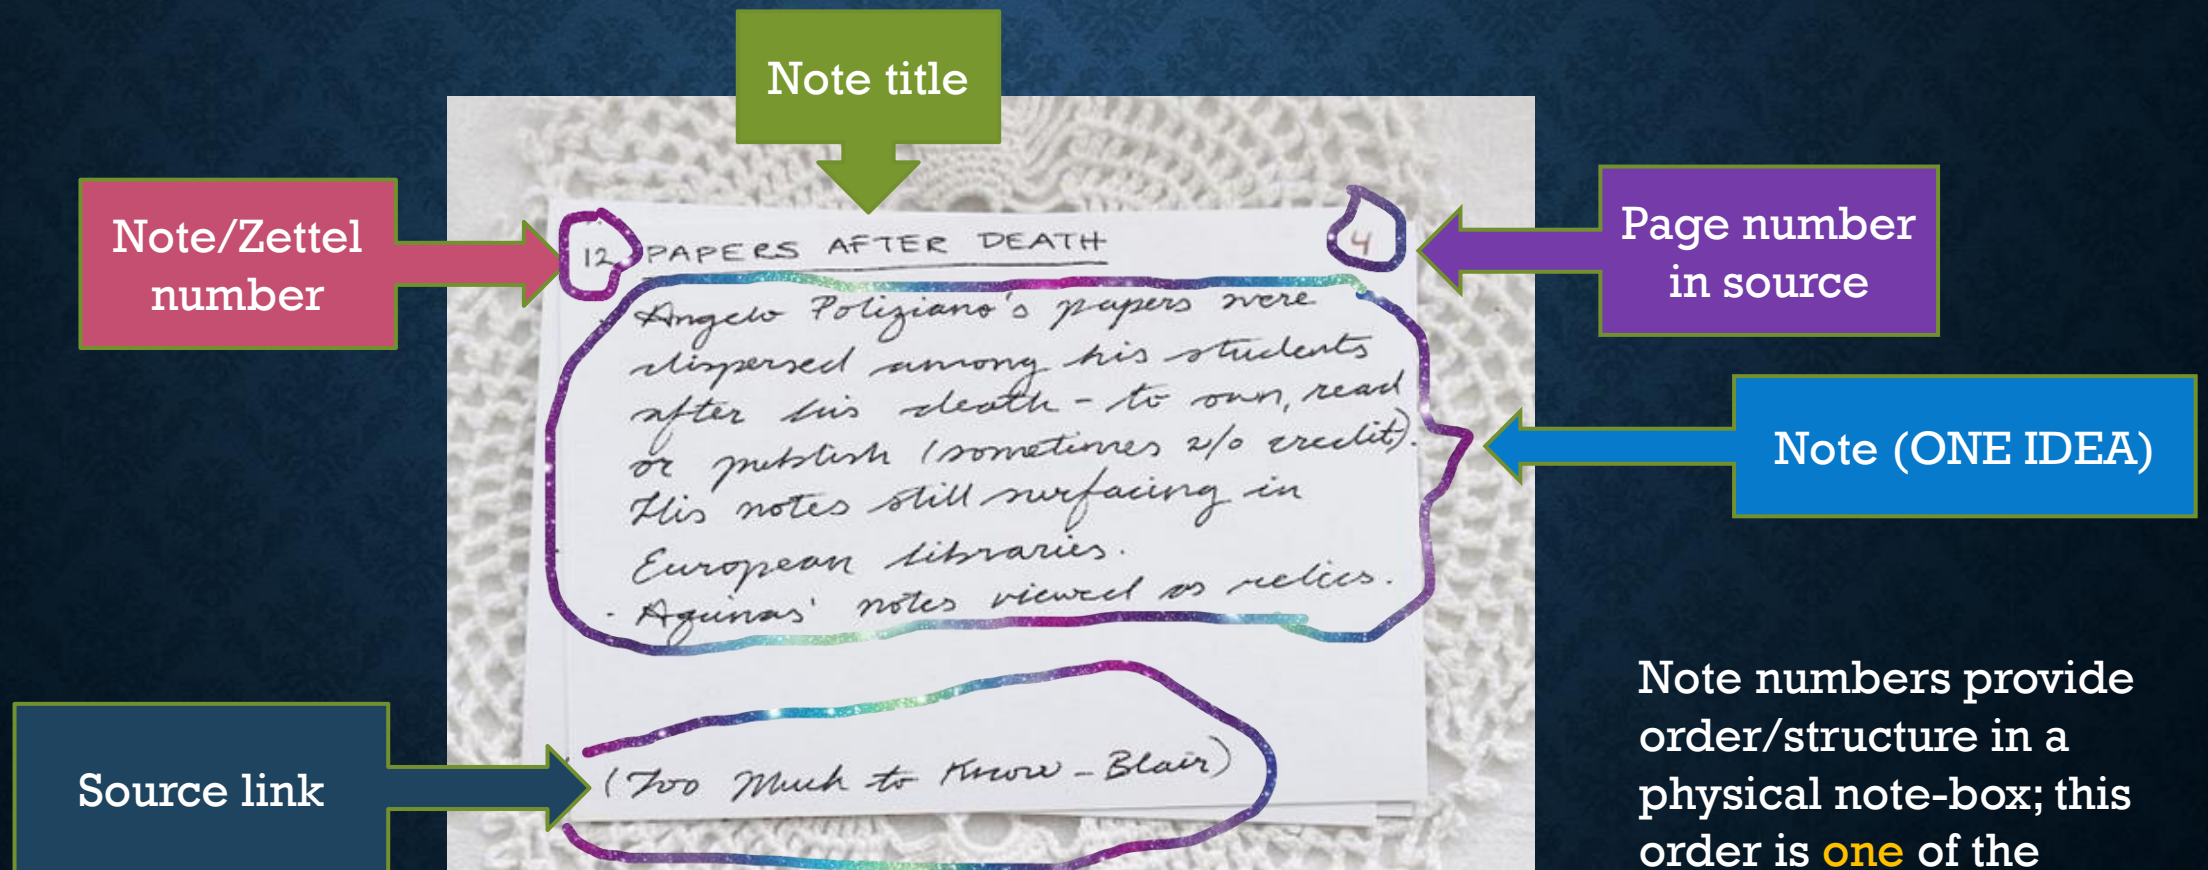 Note title
Note/Zettel
number
Page number
in source
12 PAPERS AFTER DEATH 4
· Angelo Poliziano's papers were
dispersed among his students
after his death - to own, read
or publish (sometimes w/o credit).
His notes still surfacing in
European libraries.
· Aquinas' notes viewed as relics.
Note (ONE IDEA)
Source link
(Too Much to Know - Blair)
Note numbers provide
order/structure in a
physical note-box; this
order is one of the